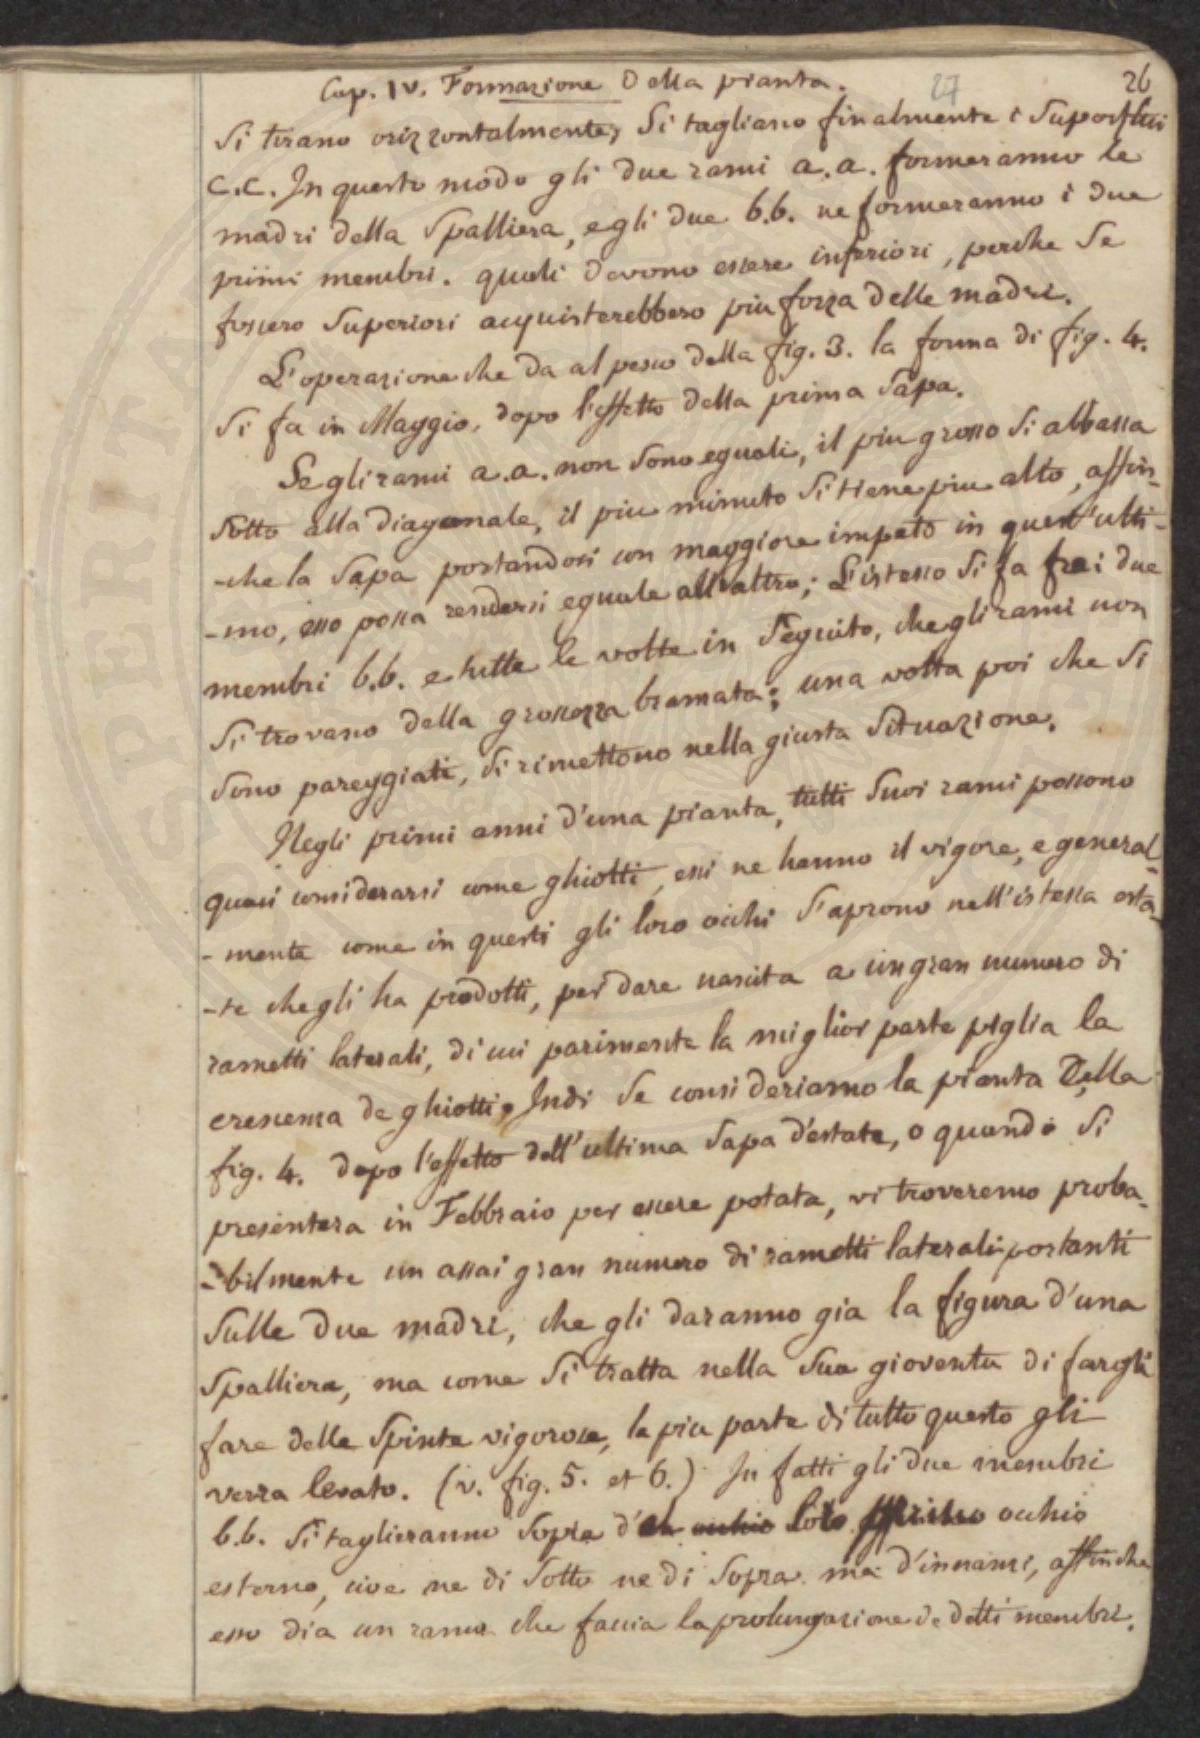 Cap. IV. Formazione Della pianta. 27 26
Si tirano orizzontalmente, Si tagliano finalmente i Superflui
C.C. In questo modo gli due rami a.a. formeranno le
madri della Spalliera, e gli due b.b. ne formeranno i due
primi membri. quali devono essere inferiori, perche Se
fossero Superiori acquisterebbero piu forza delle madri.
L'operazione che da al pesco della fig. 3. la forma di fig. 4.
Si fa in Maggio, dopo l'effetto della prima Sapa.
Se gli rami a.a. non Sono eguali, il piu grosso Si abbassa
Sotto alla diagonale, il piu minuto Si tiene piu alto, affin-
-che la Sapa portandosi con maggiore impeto in quest'ulti-
-mo, esso possa rendersi eguale all'altro; L'istesso Si fa fra i due
membri b.b. e tutte le volte in Seguito, che gli rami non
Si trovano della grossezza bramata; una volta poi che Si
Sono pareggiati, Si rimettono nella giusta Situazione.
Negli primi anni d'una pianta, tutti Suoi rami possono
quasi considerarsi come ghiotti, essi ne hanno il vigore, e general-
-mente come in questi gli loro occhi S'aprono nell'istessa esta-
-te che gli ha prodotti, per dare nascita a un gran numero di
rametti laterali, di cui parimente la miglior parte piglia la
crescenza de ghiotti. Indi Se consideriamo la pianta Della
fig. 4. dopo l'effetto dell'ultima Sapa d'estate, o quando Si
presentera in Febbraio per essere potata, vi troveremo proba-
-bilmente un assai gran numero di rametti laterali portanti
Sulle due madri, che gli daranno gia la figura d'una
Spalliera, ma come Si tratta nella Sua gioventu di fargli
fare delle Spinte vigorose, la piu parte di tutto questo gli
verra levato. (v. fig. 5. et 6.) In fatti gli due membri
b.b. Si taglieranno Sopra d'un occhio loro occhio
esterno, cioe ne di Sotto ne di Sopra ma d'innanzi, affinche
esso dia un ramo che faccia la prolungazione de detti membri.